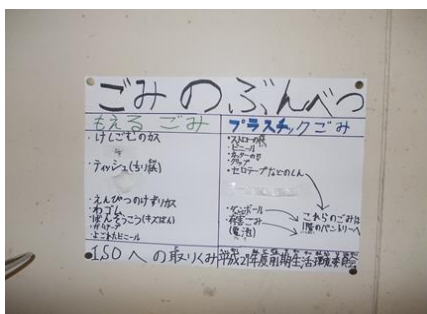 ごみのぶんべつ
もえるごみ
・けしごむのカス
・ティッシュ(ちり紙)
・えんぴつのけずりカス
・わゴム
・ばんそうこう(キズばん)
・ガムテープ
・よごれたビニール
プラスチックごみ
・ストローの袋
・ビニール
・カッターの刃
・セロテープなどのしん
・ダンボール
・有害ごみ
(電池)
これらのごみは
1階のパントリーへ
ISOへの取りくみ 平成21年度前期生活環境委員会